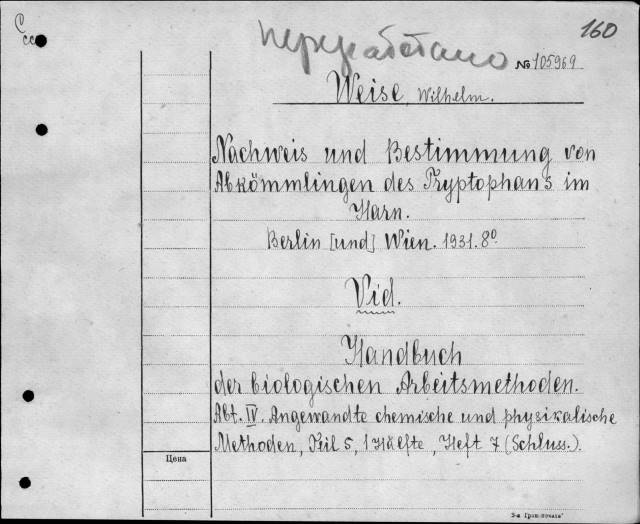 C
cc
переработано
160
№ 105969
Weise Wilhelm.
Nachweis und Bestimmung von
Abkömmlingen des Tryptophans im
Harn.
Berlin [und] Wien. 1931. 8º
Vid.
Handbuch
der biologischen Arbeitsmethoden.
Abt. IV. Angewandte chemische und physikalische
Methoden, Teil 5, 1 Hälfte, Heft 7 (Schluss.).
Цена